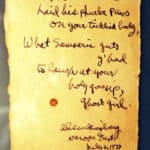 laid his Phurba Paws
on your tickled body,
What Samsaric guts
y'had
to laugh at your
holy gossip,
ghost girl.
Allen Ginsberg